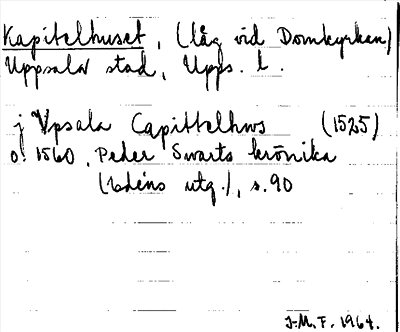 Kapitelhuset, (låg vid Domkyrkan)
Uppsala stad, Upps. l.
j Vpsala Capittelhws (1525)
o. 1560, Peder Swarts krönika
(Edéns utg.), s. 90
J.M.F. 1964.